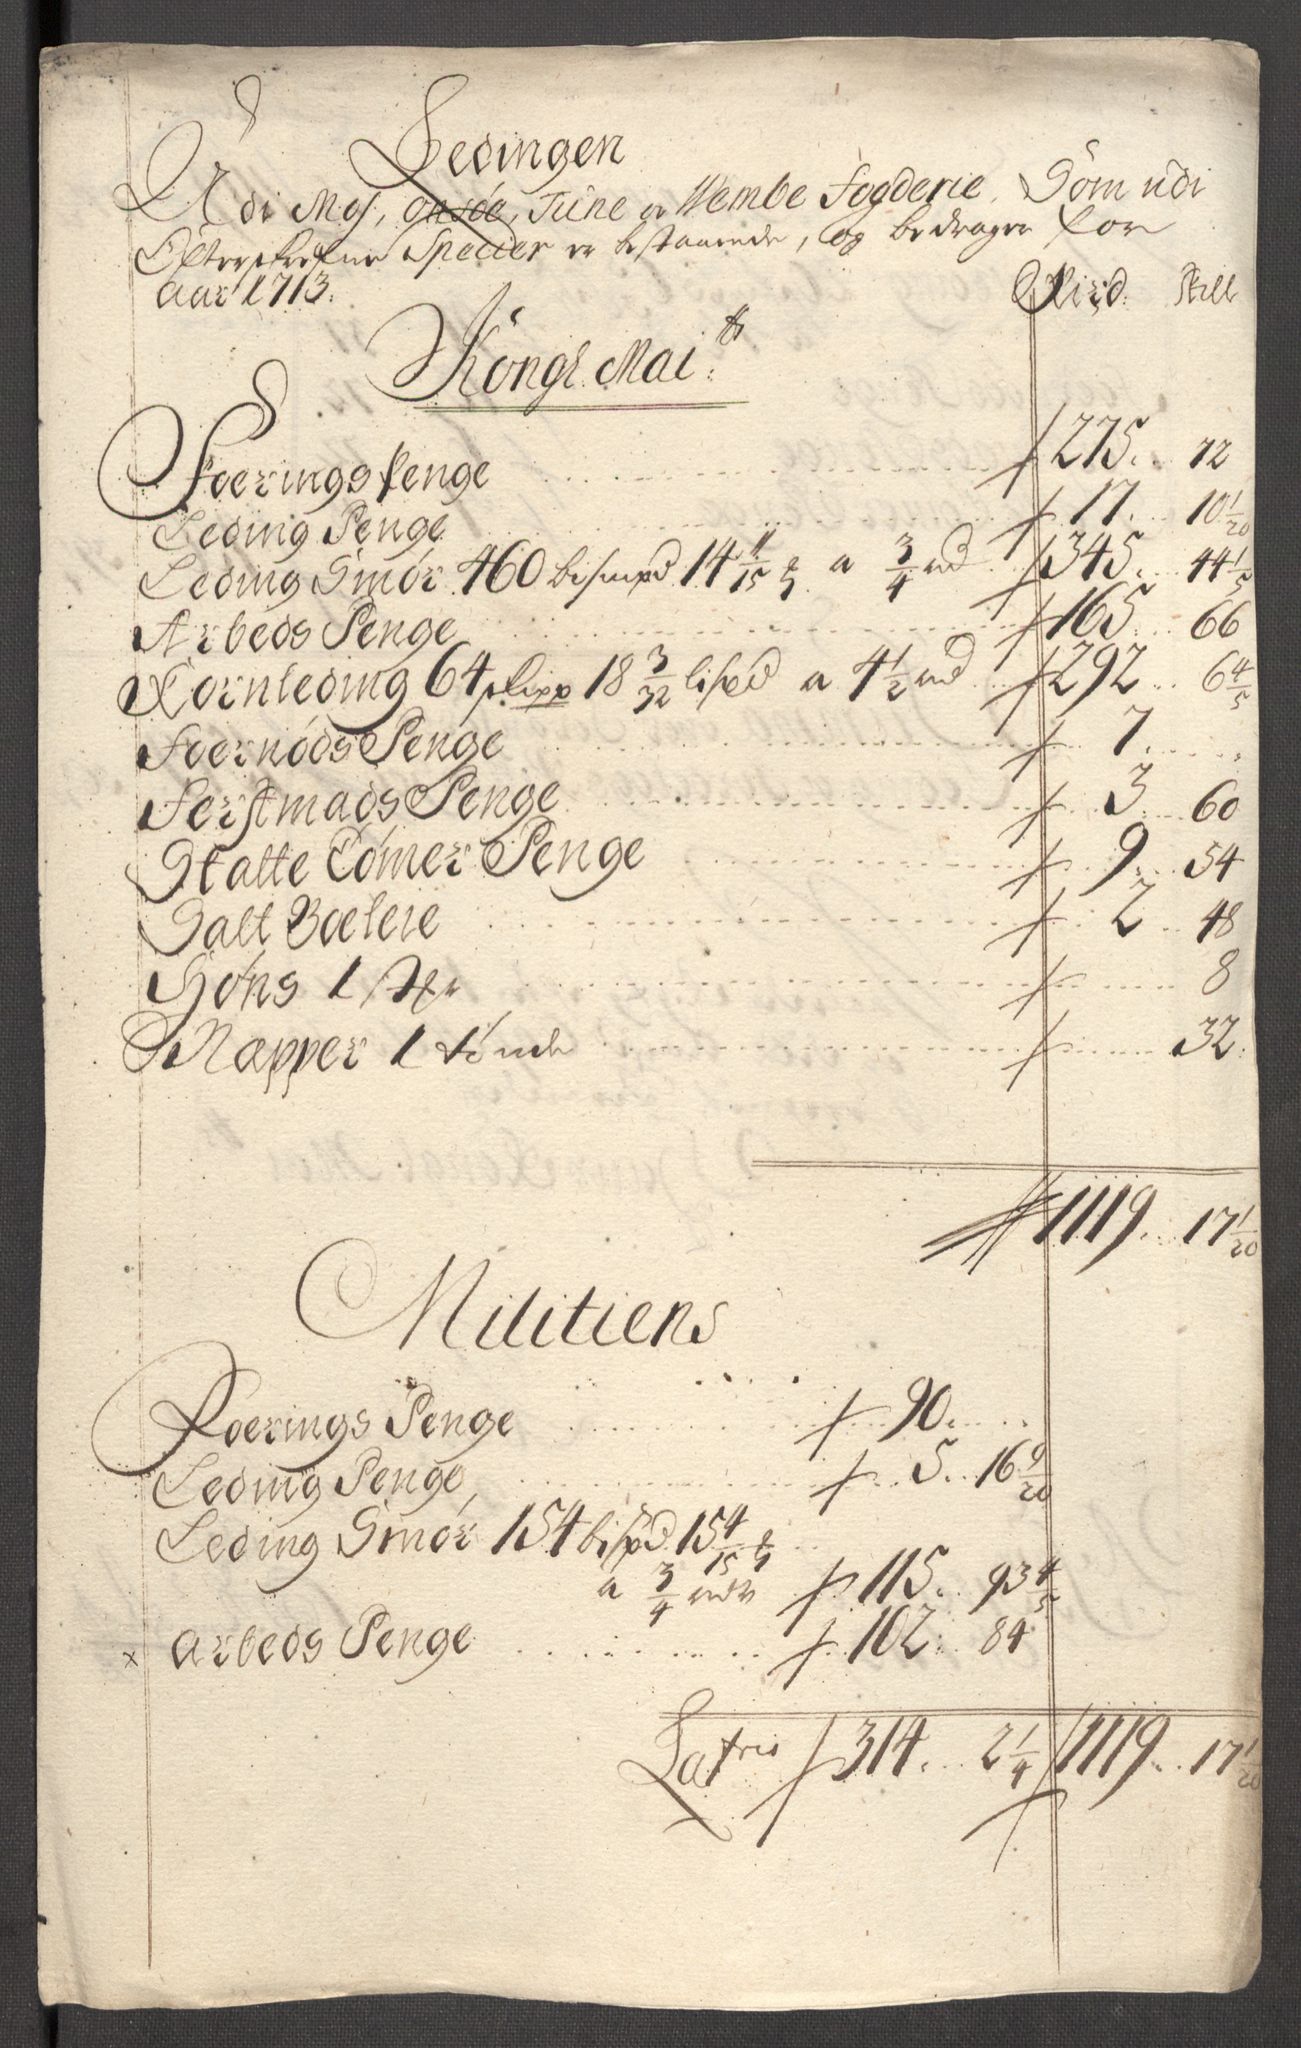 Ledingen
Udi Mos, Onsöe, Tune og Wembe Fogderie. Som udi
Efterskrefne Specier er bestaaende, og bedrager for
Aar 1713.
Rixd. skill
Kongl. Mai.ts
Foerings Penge 275. 72
Leding Penge 17. 10 1/20
Leding Smör 460 bismpd 14 11/15 ℔ a 3/4 rd 345. 44 1/5
Arbeds Penge 165. 66
Kornleding 64 skipp 18 3/32 lispd a 4 1/2 rd 292. 6 4/5
Foernöds Penge 7.
Ferstmads Penge 3. 60
Statte Tömer Penge 9. 54
Salt 2. 48
Höns 1 8
Næpper 1 tönde 32.
1119. 17 1/20
Militiens
Foerings Penge 90.
Leding Penge 5. 16 9/20
Leding Smör 154 bispd 15 4/15 ℔
a 3/4 rdr 115. 93 4/5
x Arbeds Penge 102. 84
Latris 314. 2 1/4 1119. 17 1/20